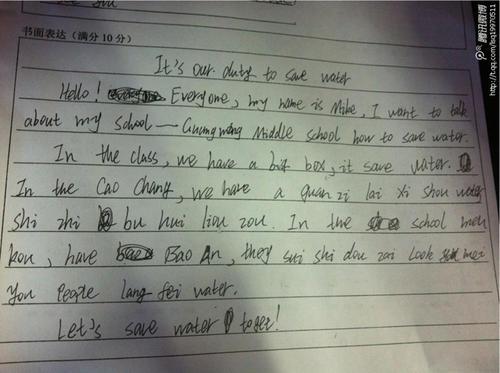 书面表达（满分10分）
It's our duty to save water
Hello! Everyone, my name is Mike, I want to talk
about my school — Guangming Middle school how to save water.
In the class, we have a big box, it save water.
In the Cao Chang, we have a guan zi lai xi shou water
shi zhi bu hui liou zou. In the school men
kou, have Bao An, they sui shi dou zai look mei
you people lang fei water.
Let's save water toger!
腾讯微博
http://t.qq.com/lsq19970511